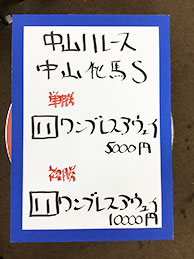 中山11レース
中山牝馬S
単勝
11 ワンブレスアウェイ
5000円
複勝
11 ワンブレスアウェイ
10000円